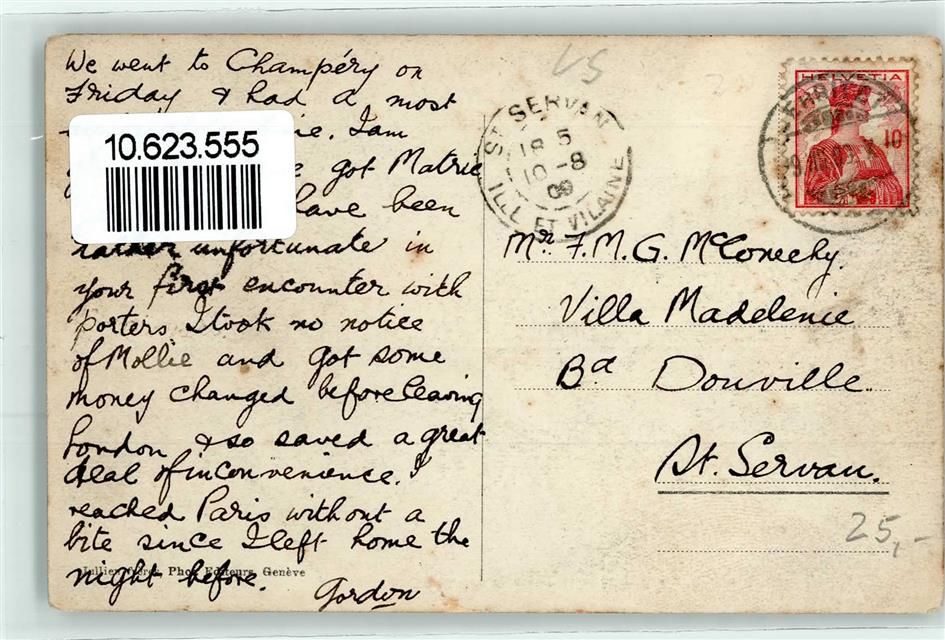 We went to Champéry on
Friday & had a most
ie. I am
10.623.555
got Matric
have been
rather unfortunate in
your first encounter with
porters I took no notice
of Mollie and got some
money changed before leaving
London & so saved a great
deal of inconvenience. I
reached Paris without a
bite since I left home the
night before.
Gordon
Jullien frères, Phot. Editeurs, Genève
ST SERVAN
18 5
10-8
09
ILL. ET VILAINE
HELVETIA
10
Mr. F.M.G. McConechy.
Villa Madelenie
Bd Douville.
St. Servan.
25,-